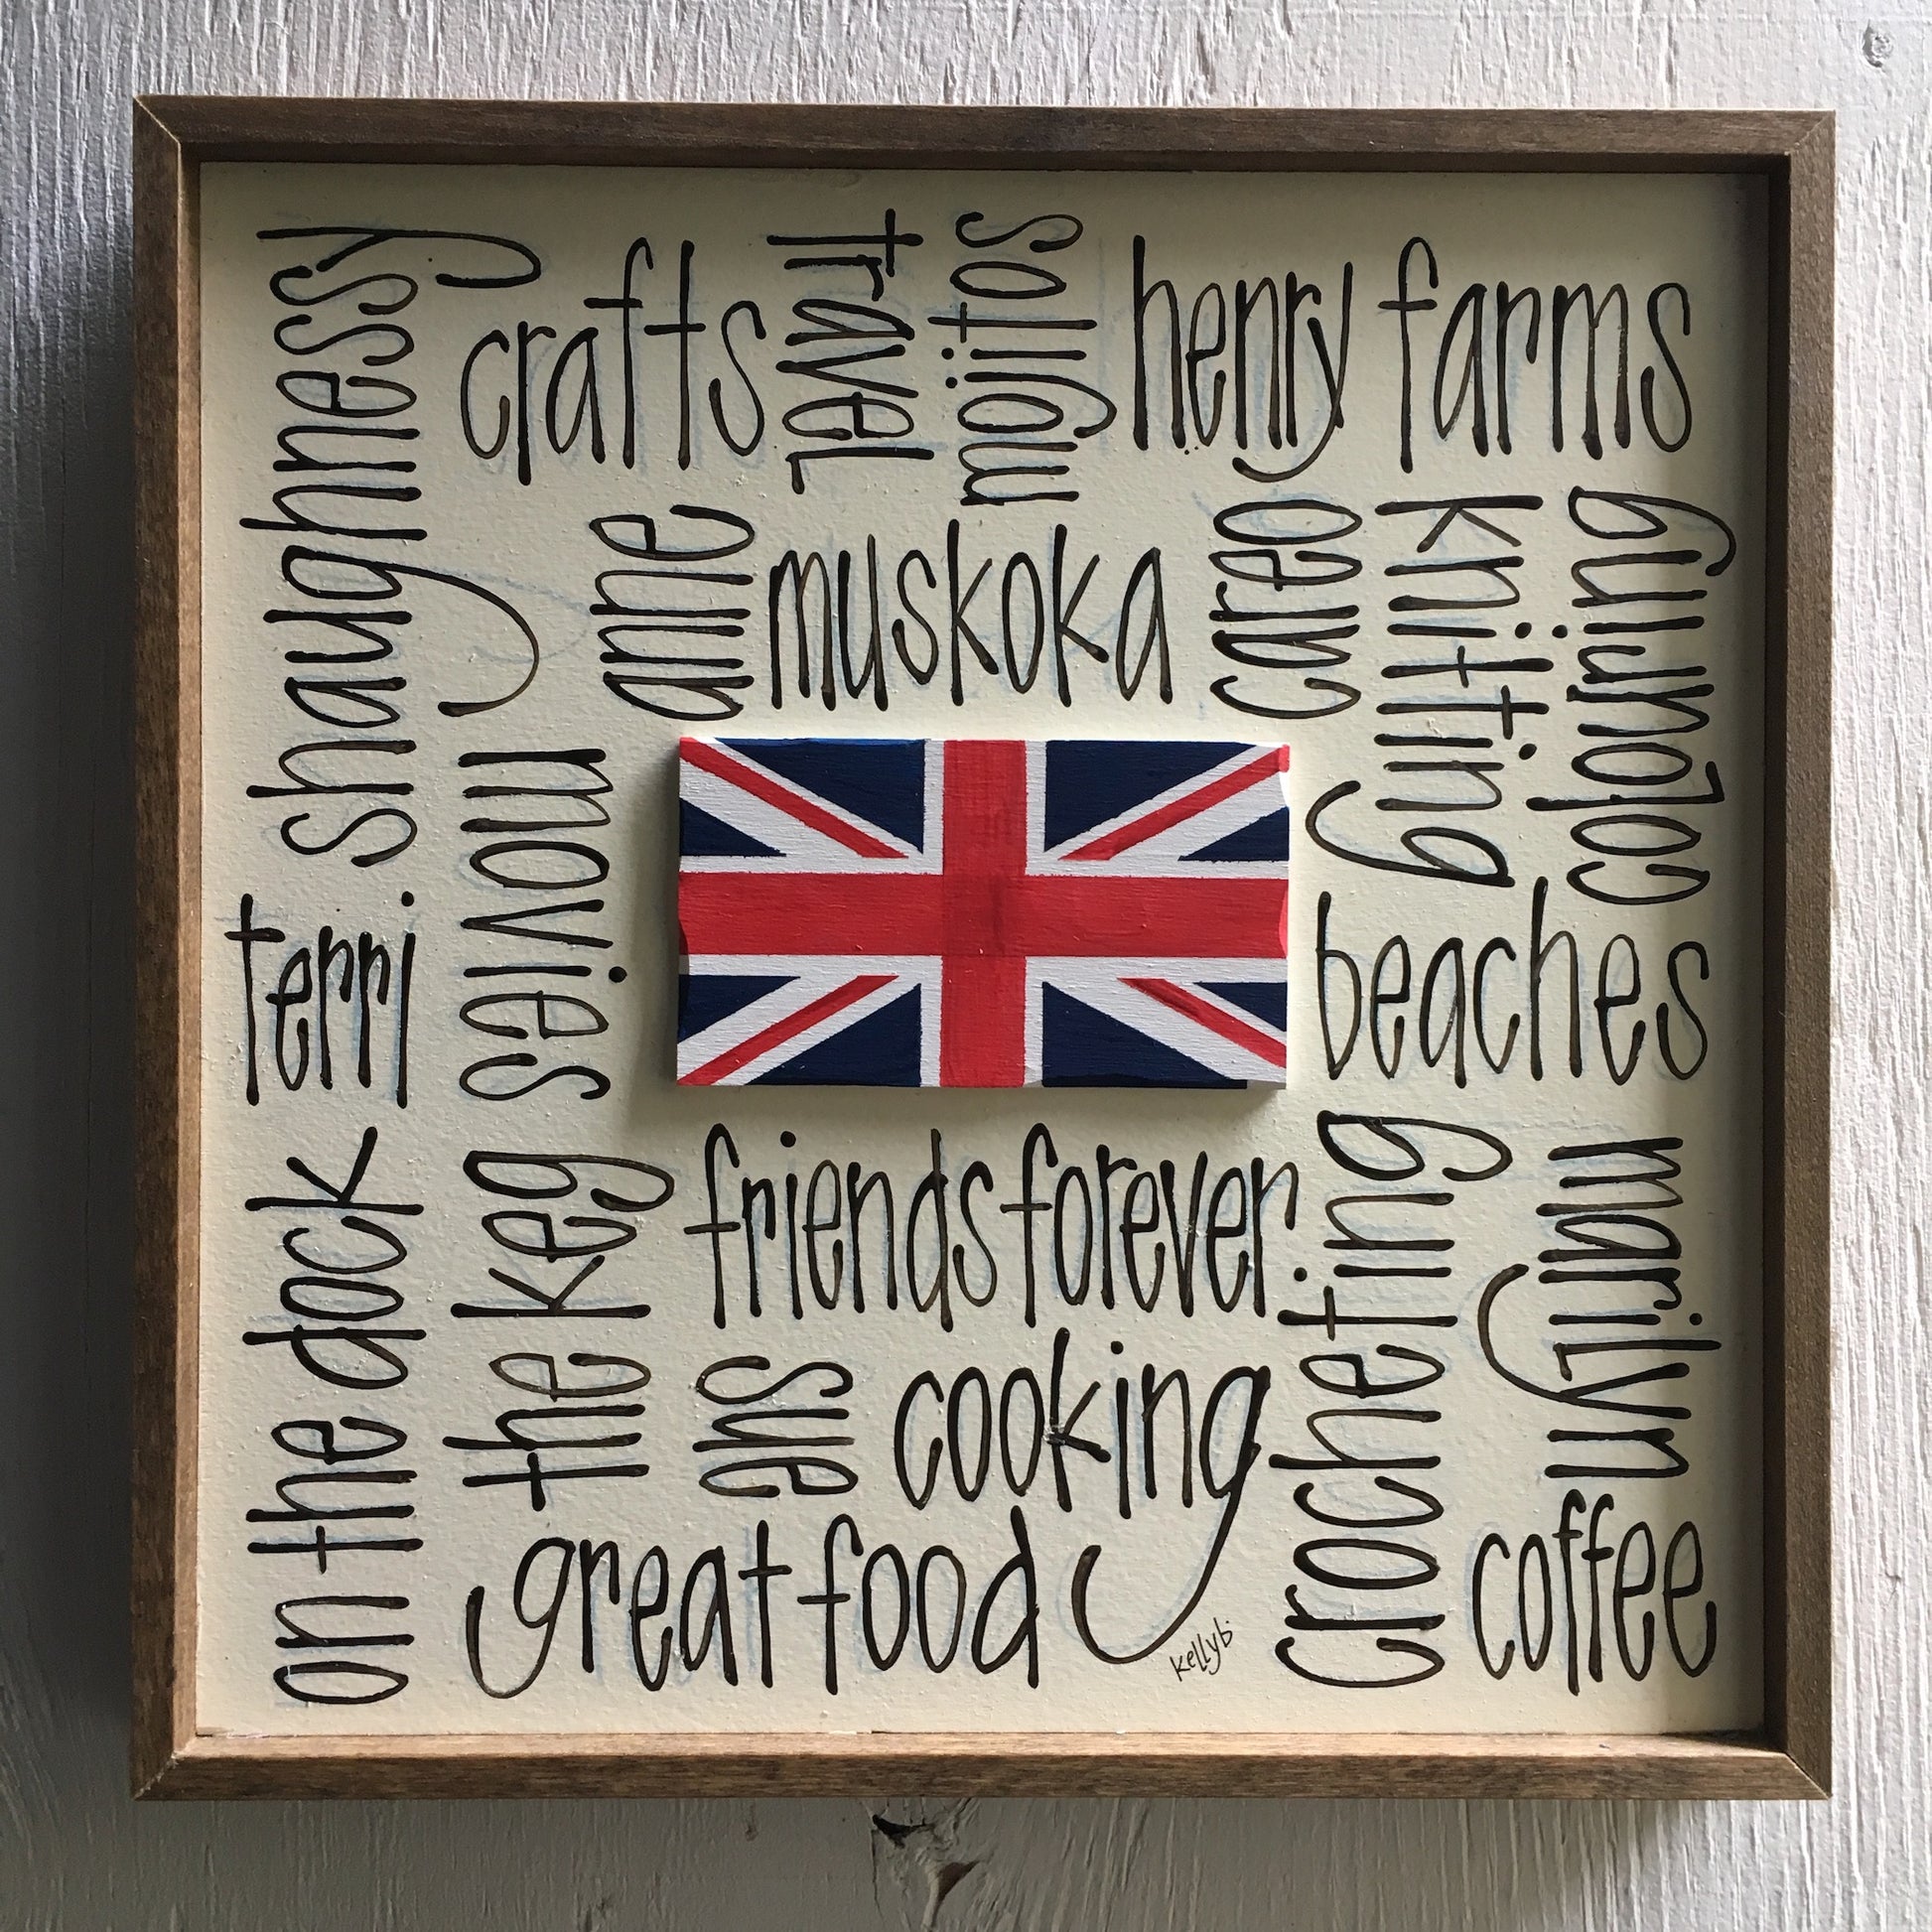 shaughnessy
crafts
travel
mojitos
henry farms
anne
muskoka
careo
knitting
colouring
terri
movies
beaches
on the dock
the keg
friends forever
crocheting
marilyn
sue
cooking
great food
coffee
kellyb